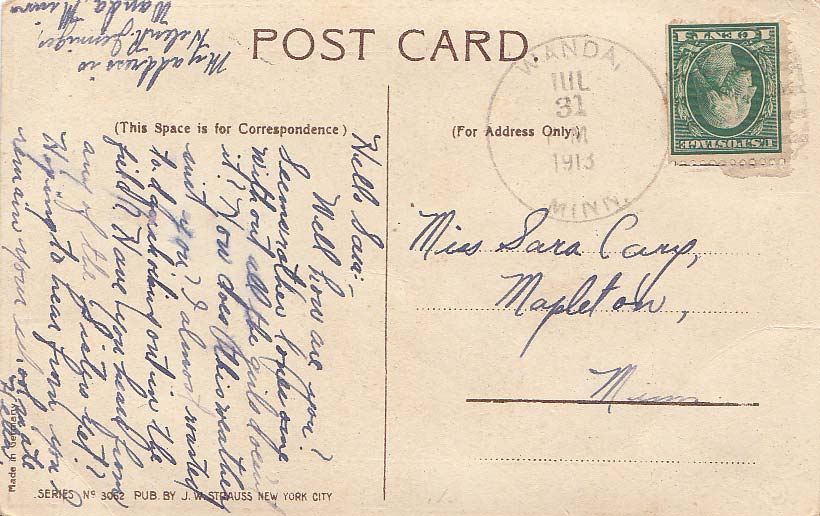 POST CARD.
(This Space is for Correspondence)
(For Address Only)
WANDA,
JUL
31
PM
1913
MINN.
1 CENT 1
U.S. POSTAGE
Miss Sara Cary,
Mapleton,
Minn
Hello Sara:-
Well how are you?
Seems rather lonesome
without all the girls doesn't
it? How does this weather
suit you? I almost wanted
to d shocking out in the
field. Have you heard from
any of the girls yet?
Hoping to hear from you
remain your schoolmate
Helen
My address is
Helen
Wanda, Minn
Made in Germany
SERIES No 3062 PUB. BY J. W. STRAUSS NEW YORK CITY